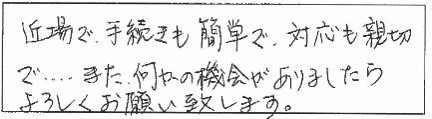 近場で、手続きも簡単で、対応も親切
で.... また、何かの機会がありましたら
よろしくお願い致します。